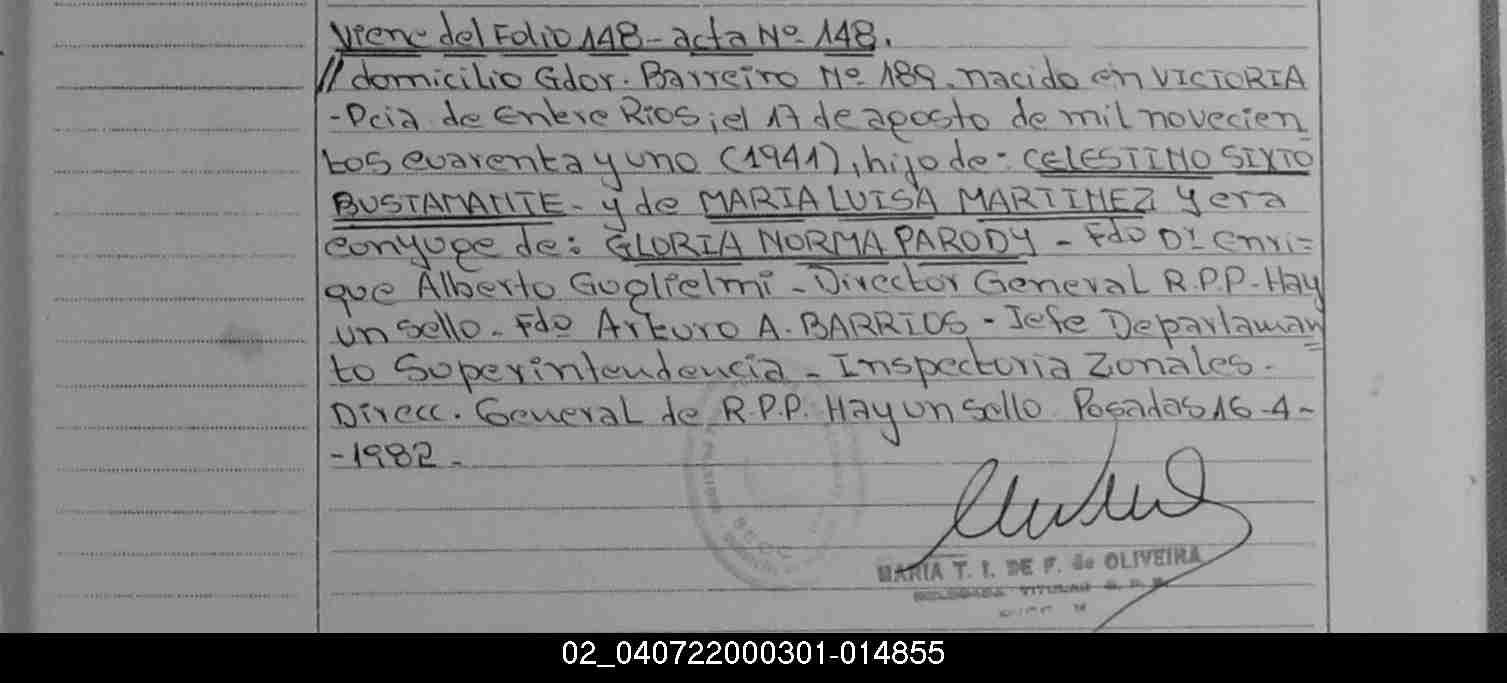 Viene del Folio 148 - acta Nº 148.
// domicilio Gdor. Barreiro Nº 189. nacido en VICTORIA
- Pcia de Entre Rios, el 17 de agosto de mil novecien
tos cuarenta y uno (1941), hijo de: CELESTINO SIXTO
BUSTAMANTE - y de MARIA LUISA MARTINEZ y era
conyuge de: GLORIA NORMA PARODY - Fdo Dr Enri=
que Alberto Guglielmi - Director General R.P.P. - Hay
un sello - Fdo Arturo A. BARRIOS - Jefe Departaman
to Superintendencia - Inspectoria Zonales -
Direcc. General de R.P.P. Hay un sello Posadas 16-4-
-1982 -
MARIA T. I. DE F. de OLIVEIRA
DELEGADA TITULAR
02_040722000301-014855